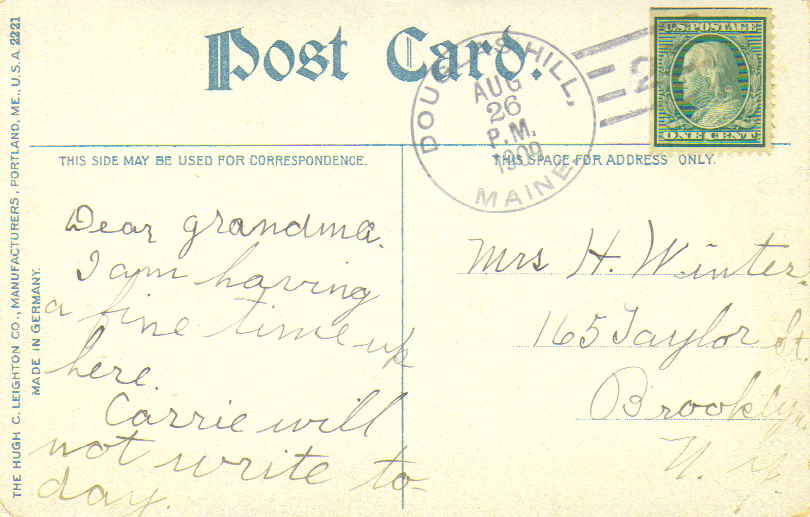 Post Card.
U.S. POSTAGE
ONE CENT
DOUGLAS HILL,
AUG
26
P.M.
1909
MAINE
THIS SIDE MAY BE USED FOR CORRESPONDENCE.
THIS SPACE FOR ADDRESS ONLY.
THE HUGH C. LEIGHTON CO., MANUFACTURERS, PORTLAND, ME., U.S.A. 2221
MADE IN GERMANY.
Dear grandma.
I am having
a fine time up
here.
Carrie will
not write to-
day.
Mrs H. Winter.
165 Taylor St.
Brooklyn
N. Y.